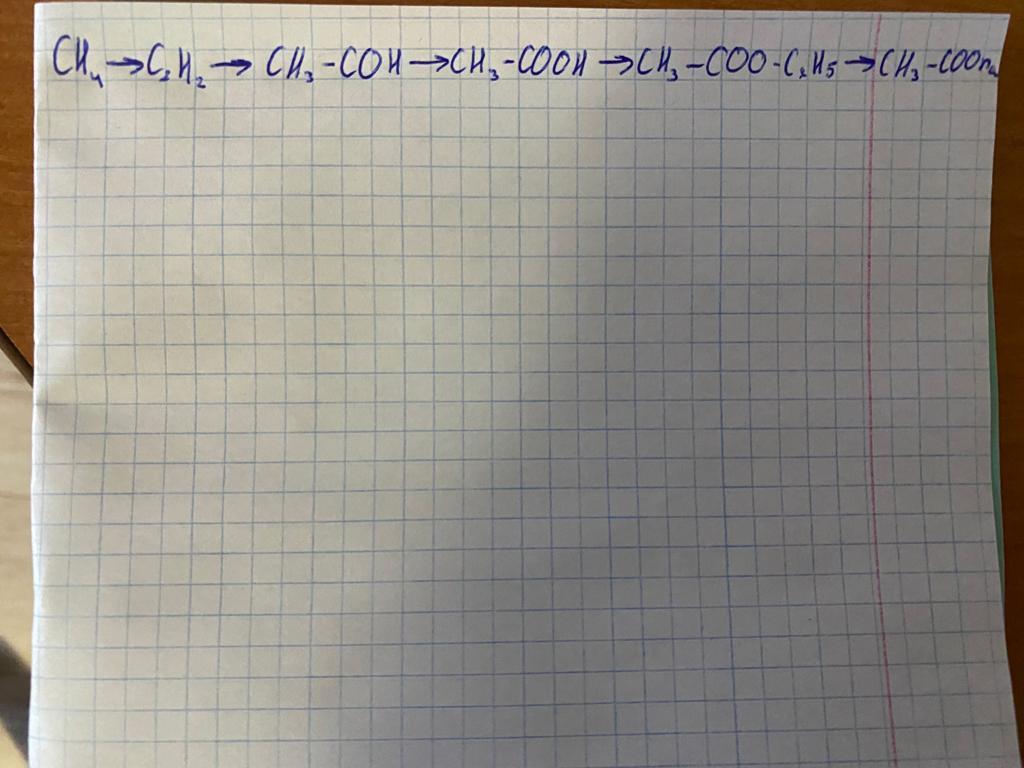 CH₄ → C₂H₂ → CH₃-COH → CH₃-COOH → CH₃-COO-C₂H₅ → CH₃-COONa